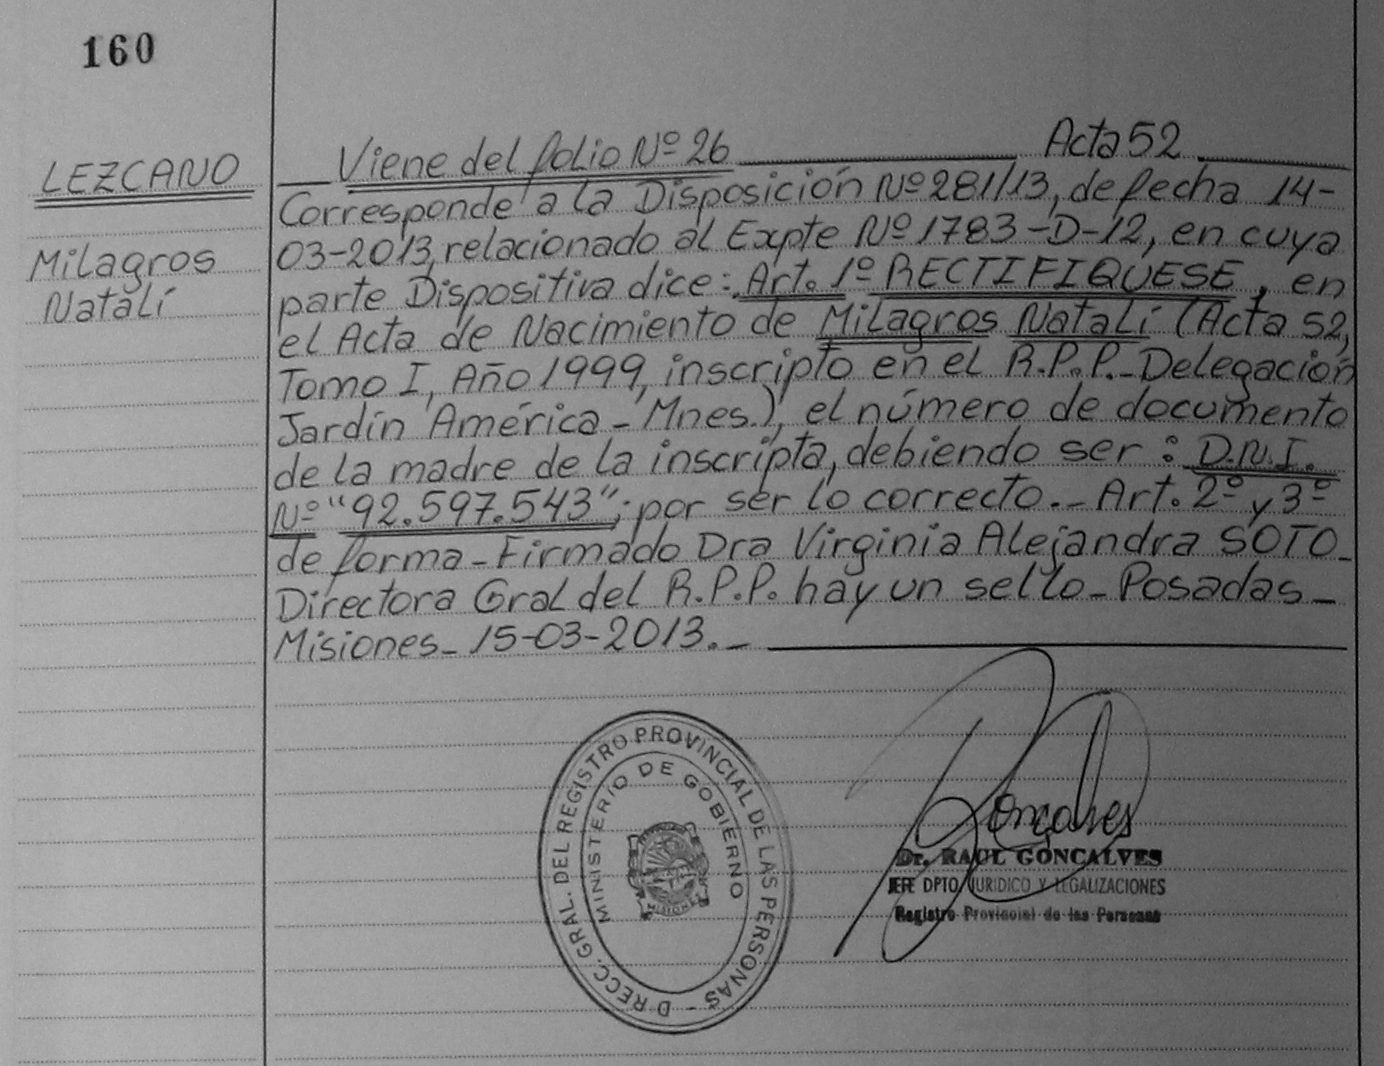 160
LEZCANO
Milagros
Natalí
Viene del folio Nº 26 Acta 52
Corresponde a la Disposición Nº 281/13, de fecha 14-
03-2013, relacionado al Expte Nº 1783-D-12, en cuya
parte Dispositiva dice: Art. 1º RECTIFIQUESE, en
el Acta de Nacimiento de Milagros Natalí (Acta 52,
Tomo I, Año 1999, inscripto en el R.P.P.-Delegación
Jardín América - Mnes.), el número de documento
de la madre de la inscripta, debiendo ser: D.N.I.
Nº "92.597.543"; por ser lo correcto.- Art. 2º y 3º
de forma - Firmado Dra Virginia Alejandra SOTO -
Directora Gral del R.P.P. hay un sello - Posadas -
Misiones - 15-03-2013.-
DIRECC. GRAL. DEL REGISTRO PROVINCIAL DE LAS PERSONAS -
MINISTERIO DE GOBIERNO
MISIONES
Gonçalves
Dr. RAUL GONÇALVES
JEFE DPTO JURIDICO Y LEGALIZACIONES
Registro Provincial de las Personas